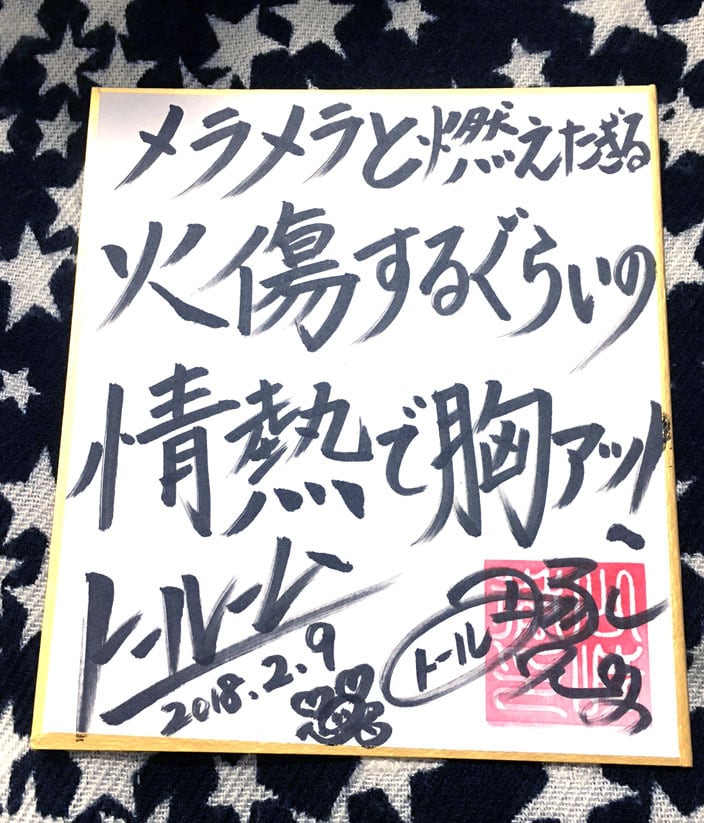 メラメラと燃えたぎる
火傷するぐらいの
情熱で胸アツ!
トールーム
2018.2.9
トール